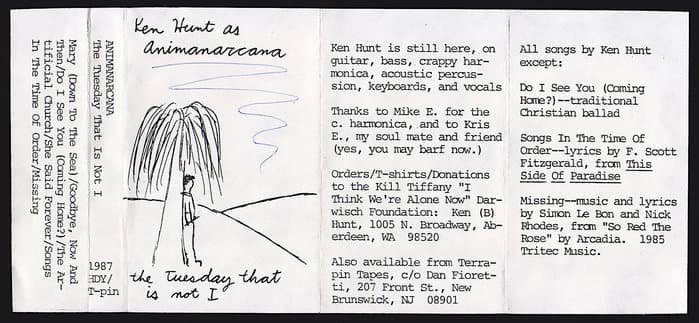 Mary (Down To The Sea)/Goodbye, Now And
Then/Do I See You (Coming Home?)/The Ar-
tificial Church/She Said Forever/Songs
In The Time Of Order/Missing
ANIMANARCANA
The Tuesday That Is Not I
1987
HDY/
T-pin
Ken Hunt as
Animanarcana
the Tuesday that
is not I
Ken Hunt is still here, on
guitar, bass, crappy har-
monica, acoustic percus-
sion, keyboards, and vocals
Thanks to Mike E. for the
c. harmonica, and to Kris
E., my soul mate and friend
(yes, you may barf now.)
Orders/T-shirts/Donations
to the Kill Tiffany "I
Think We're Alone Now" Dar-
wisch Foundation: Ken (B)
Hunt, 1005 N. Broadway, Ab-
erdeen, WA 98520
Also available from Terra-
pin Tapes, c/o Dan Fioret-
ti, 207 Front St., New
Brunswick, NJ 08901
All songs by Ken Hunt
except:
Do I See You (Coming
Home?)--traditional
Christian ballad
Songs In The Time Of
Order--lyrics by F. Scott
Fitzgerald, from This
Side Of Paradise
Missing--music and lyrics
by Simon Le Bon and Nick
Rhodes, from "So Red The
Rose" by Arcadia. 1985
Tritec Music.